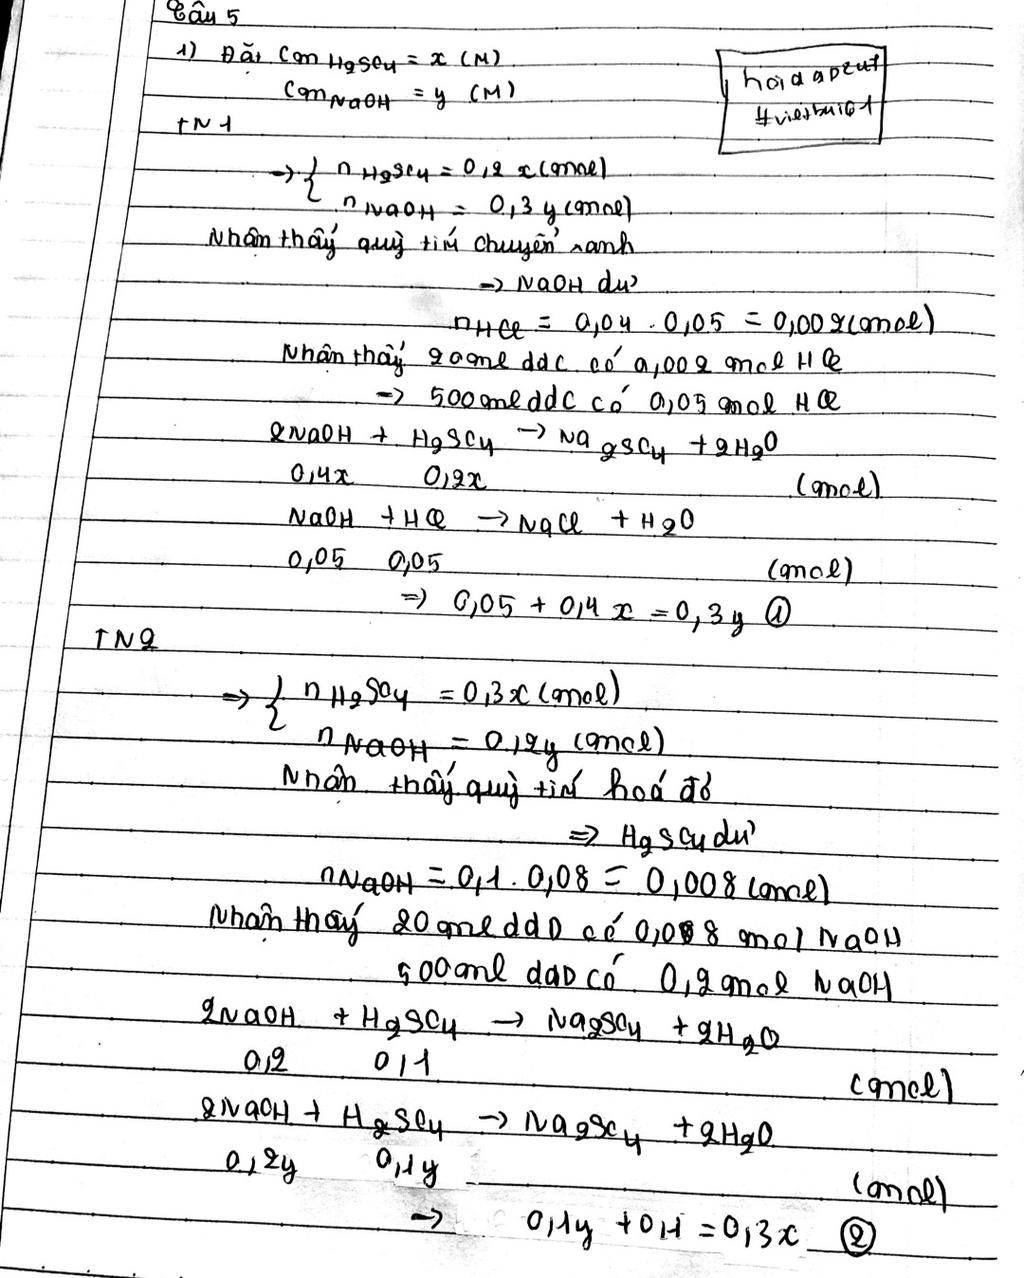 Câu 5
1) Đặt CM H2SO4 = x (M)
CM NaOH = y (M)
hoidap247
#vietbui01
TN1
→ { n H2SO4 = 0,2 x (mol)
n NaOH = 0,3 y (mol)
Nhận thấy quỳ tím chuyển xanh
→ NaOH dư
nHCl = 0,04 . 0,05 = 0,002 (mol)
Nhận thấy 20ml ddC có 0,002 mol HCl
→ 500ml ddC có 0,05 mol HCl
2NaOH + H2SO4 → Na2SO4 + 2H2O
0,4x 0,2x (mol)
NaOH + HCl → NaCl + H2O
0,05 0,05 (mol)
⇒ 0,05 + 0,4 x = 0,3 y ①
TN2
⇒ { n H2SO4 = 0,3x (mol)
n NaOH = 0,2y (mol)
Nhận thấy quỳ tím hoá đỏ
⇒ H2SO4 dư
nNaOH = 0,1 . 0,08 = 0,008 (mol)
Nhận thấy 20ml ddD có 0,008 mol NaOH
500ml ddD có 0,2 mol NaOH
2NaOH + H2SO4 → Na2SO4 + 2H2O
0,2 0,1 (mol)
2NaOH + H2SO4 → Na2SO4 + 2H2O
0,2y 0,1y (mol)
→ 0,1y + 0,1 = 0,3x ②